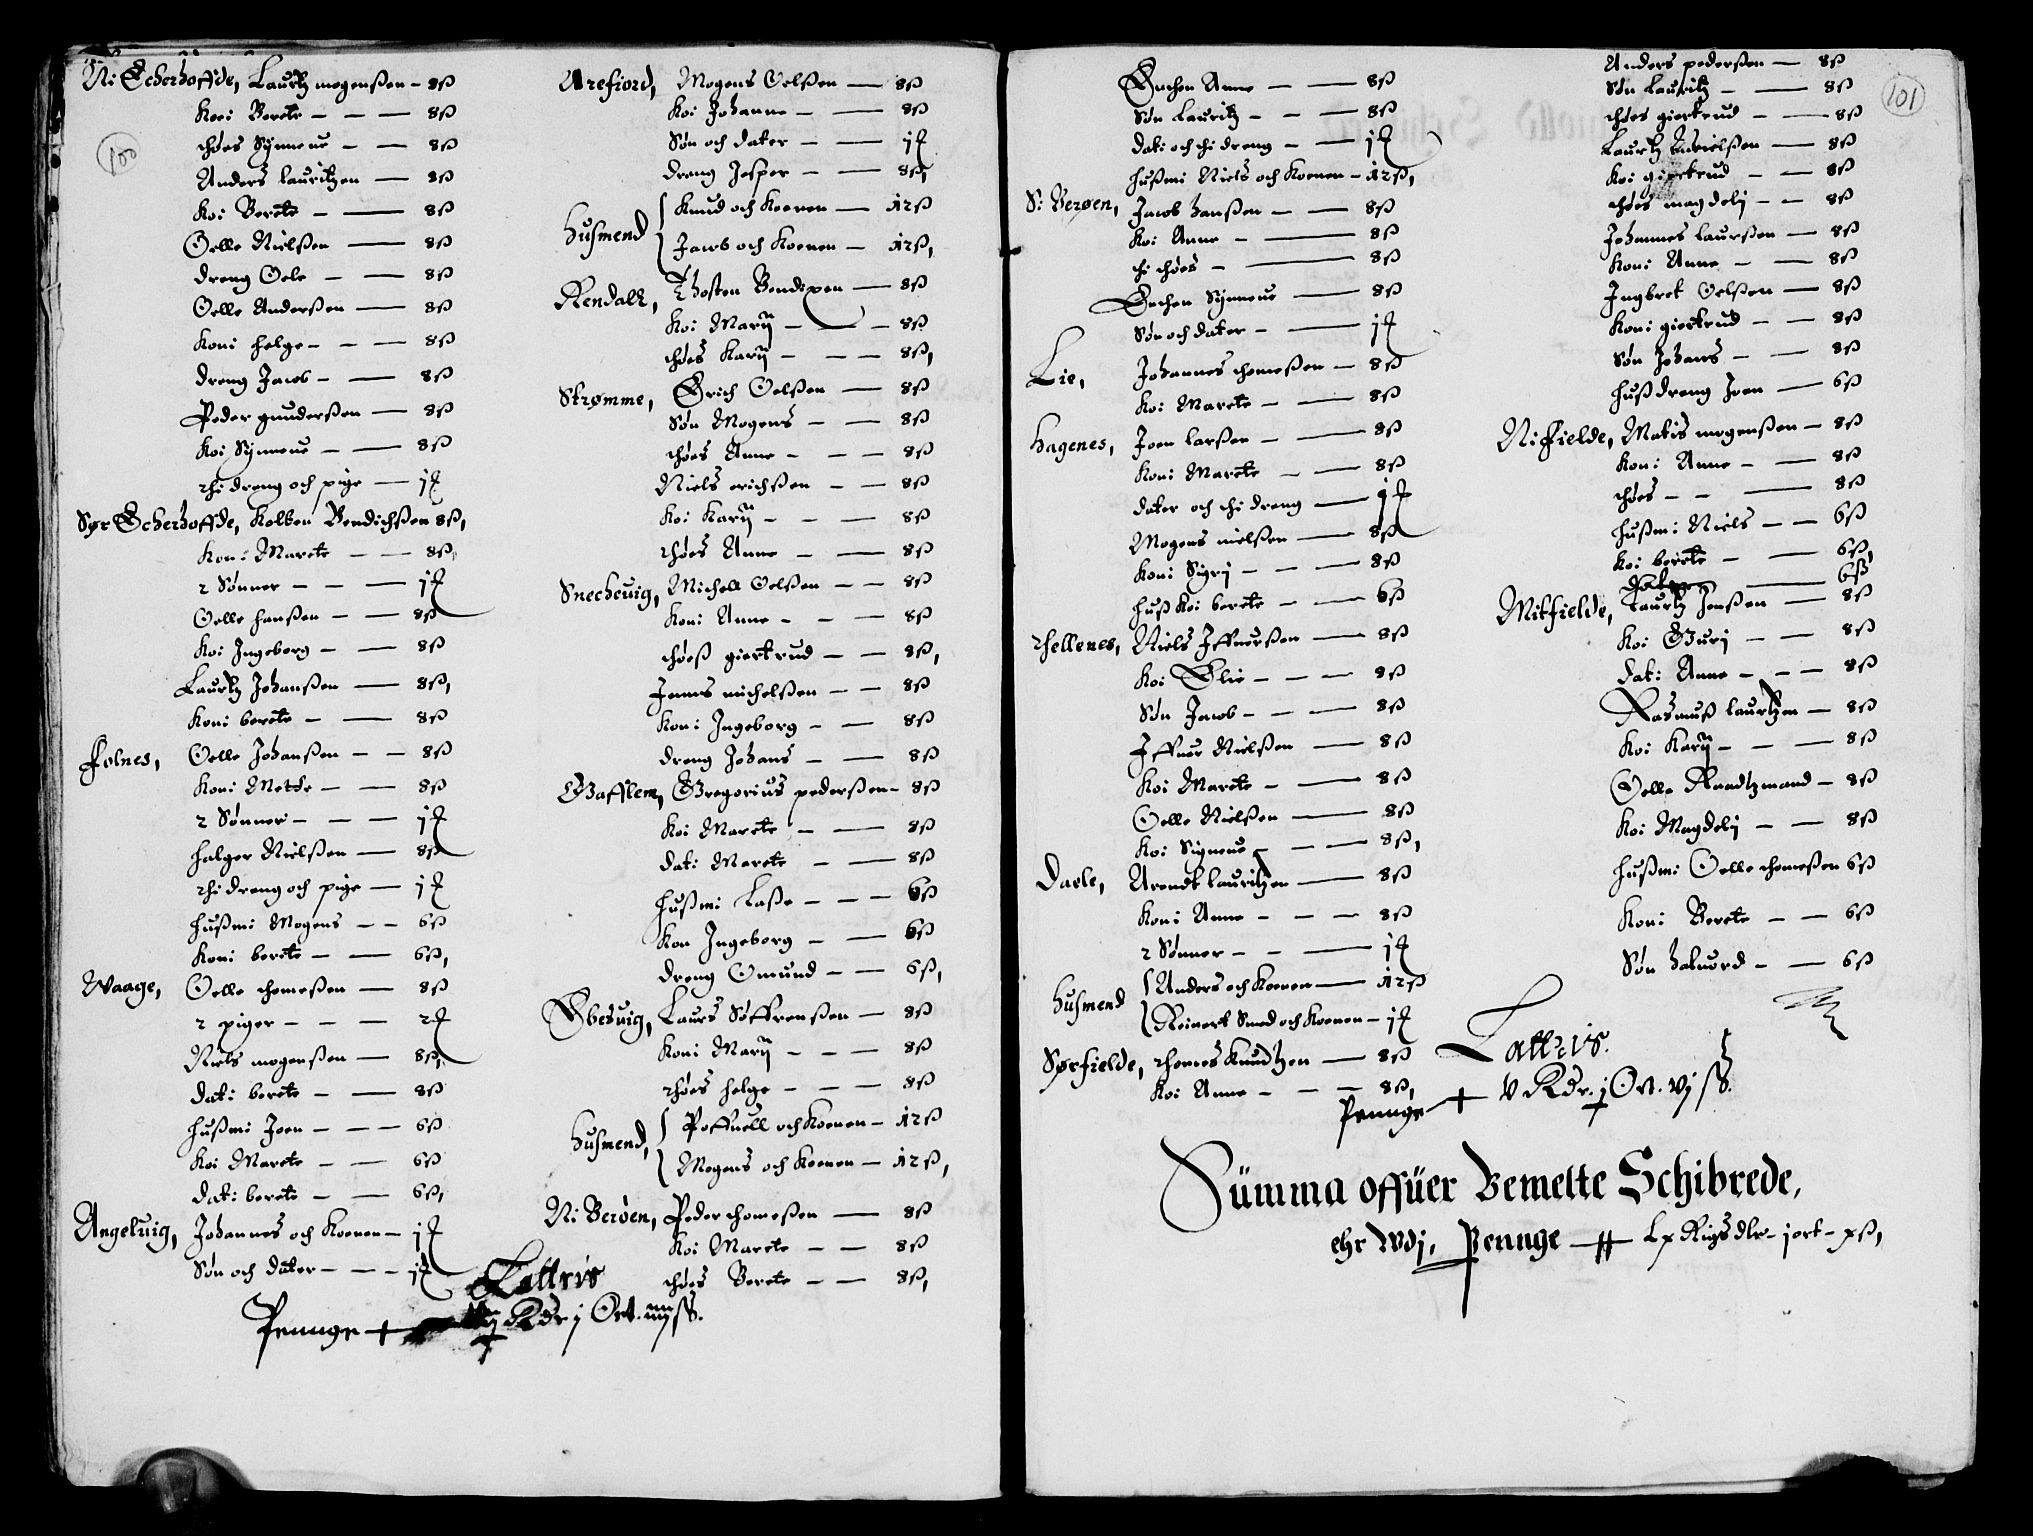 100
Ni Echerhoffde, Lauritz mogenßen - 8ß
Koi Berete - - - 8ß
thøes Synneue - - 8ß
Anders lauritzen - 8ß
Koi Berete - - 8ß
Oelle Nielßen - 8ß
dreng Oele - - 8ß
Oelle Anderßen - 8ß
Koni helge - - - 8ß
dreng Jacob - - 8ß
Peder gunderßen - 8ß
Koi Synneue - - 8ß
thi dreng och pige - j
Sør Echerhoffde, Kolben Bendichßen 8ß,
Koni Marete - - 8ß,
2 Sønner - - - j
Oelle hanßen - - 8ß
Koi Ingeborg - - 8ß
Lauritz Johanßen - 8ß,
Koni berete - - 8ß
Folnes, Oelle Johanßen - - 8ß
Koni Mette - - 8ß
2 Sønner - - - j
halger Nielßen - 8ß
thi dreng och pige - j
hußmi Mogens - - 6ß
Koni berete - - 6ß,
Waage, Oelle thomeßen - 8ß
2 piger - - - 2
Niels mogenßen - 8ß,
dat: berete - - 8ß
hußmi Joen - - - 6ß
Koi Marete - - 6ß
dat: berete - - 6ß,
Angeluig, Johannes och Koenen - j
Søn och dater - - - j
Lattris
Pennge Rdr j Ort.
Arefiord, Mogens Oelßen - 8ß
Koi Johanne - - 8ß
Søn och dater - - j
dreng Jesper - - 8ß,
Husmend
Knud och Koenen - 12ß
Jacob och Koenen - 12ß,
Rendall, Thosten Bendixen - 8ß
Koi Marij - - 8ß
thøes Karij - - - 8ß,
Strømme, Erich Oelßen - 8ß
Søn Mogens - - 8ß
thøes Anne - - - 8ß
Niels erichßen - - 8ß
Koi Karij - - - 8ß
thøes Anne - - 8ß
Snecheuig, Michell Oelßen - - 8ß
Koni Anne - - - 8ß
thøeß giertrud - - 8ß,
Jenns michelßen - - 8ß
Koni Ingeborg - - 8ß
dreng Johans - - 8ß
Gafflem, Gregorius pederßen - 8ß
Koi Marete - - 8ß
dat: Marete - - 8ß
hußmi Laße - - - 6ß
Kon Ingeborg - - 6ß
dreng Omund - - 6ß,
Ebesuig, Laurs Søffrenßen - 8ß
Koni Marij - - - 8ß
thøes helge - - - 8ß
Husmend,
Poffuell och Koenen - 12ß
Mogens och Koenen - 12ß,
Ni Berøen, Peder thomeßen - 8ß
Koi Marete - - 8ß
thøes Berete - - 8ß,
101
Enchen Anne - - 8ß
Søn Lauritz - - - 8ß
dat: och thi dreng - - j
hußmi Niels och Koenen - 12ß,
S: Berøen, Jacob hanßen - - 8ß
Koi Anne - - 8ß
thi thøes - - 8ß
Enchen Synneue - 8ß
Søn och dater - - j
Lie, Johannes thomeßen - 8ß
Koi Marete - - 8ß
Hagenes, Joen larßen - - 8ß
Koni Marete - - 8ß
dater och thi dreng - j
Mogens nielßen - 8ß
Koni Sigrj - - - 8ß
huß Koi berete - - 6ß
Thellenes, Niels Iffuerßen - 8ß
Koi Elie - - - 8ß
Søn Jacob - - - 8ß
Iffuer Nielßen - 8ß
Koi Marete - - 8ß
Oelle Nielßen - 8ß
Koi Signeue - - - 8ß,
Daele, Arendt lauritzen - 8ß
Koni Anne - - - 8ß
2 Sønner - - - j
Husmend
Anders och Koenen - 12ß
Reinert Smed och Koenen - j
Sørfielde, thomes Knudtzen - 8ß
Koi Anne - - - 8ß,
Anders pederßen - 8ß
Søn Lauritz - - 8ß
thøes giertrud - - 8ß
Lauritz Nielßen - 8ß
Koi giertrud - - 8ß
thøes magdelj - - 8ß
Johannes laurßen - 8ß
Koni Anne - - 8ß
Ingbret Oelßen - 8ß
Koni giertrud - - 8ß
Søn Johans - - 8ß
huß dreng Joen - 6ß
Ni fielde, Matis mogenßen - 8ß
Koni Anne - - 8ß
thøes - - - 8ß
hußmi Niels - - 6ß
Koi berete - - 6ß,
dater - 6ß
Mitfielde, Lauritz Jenßen - 8ß
Koi Gurj - - 8ß
dat: Anne - - - 8ß
Rasmuß lauritzen - 8ß
Koi Karij - - - 8ß
Oelle Raadtzmand - 8ß
Koi Magdelj - - 8ß
hußmi Oelle thomeßen 6ß
Koni Berete - - 6ß
Søn haluord - - 6ß
Lattris.
Pennge v Rdr. j Ort. vj ß.
Summa offuer Bemelte Schibrede,
Pennge Lx Rigs dlr - j ort - xß,